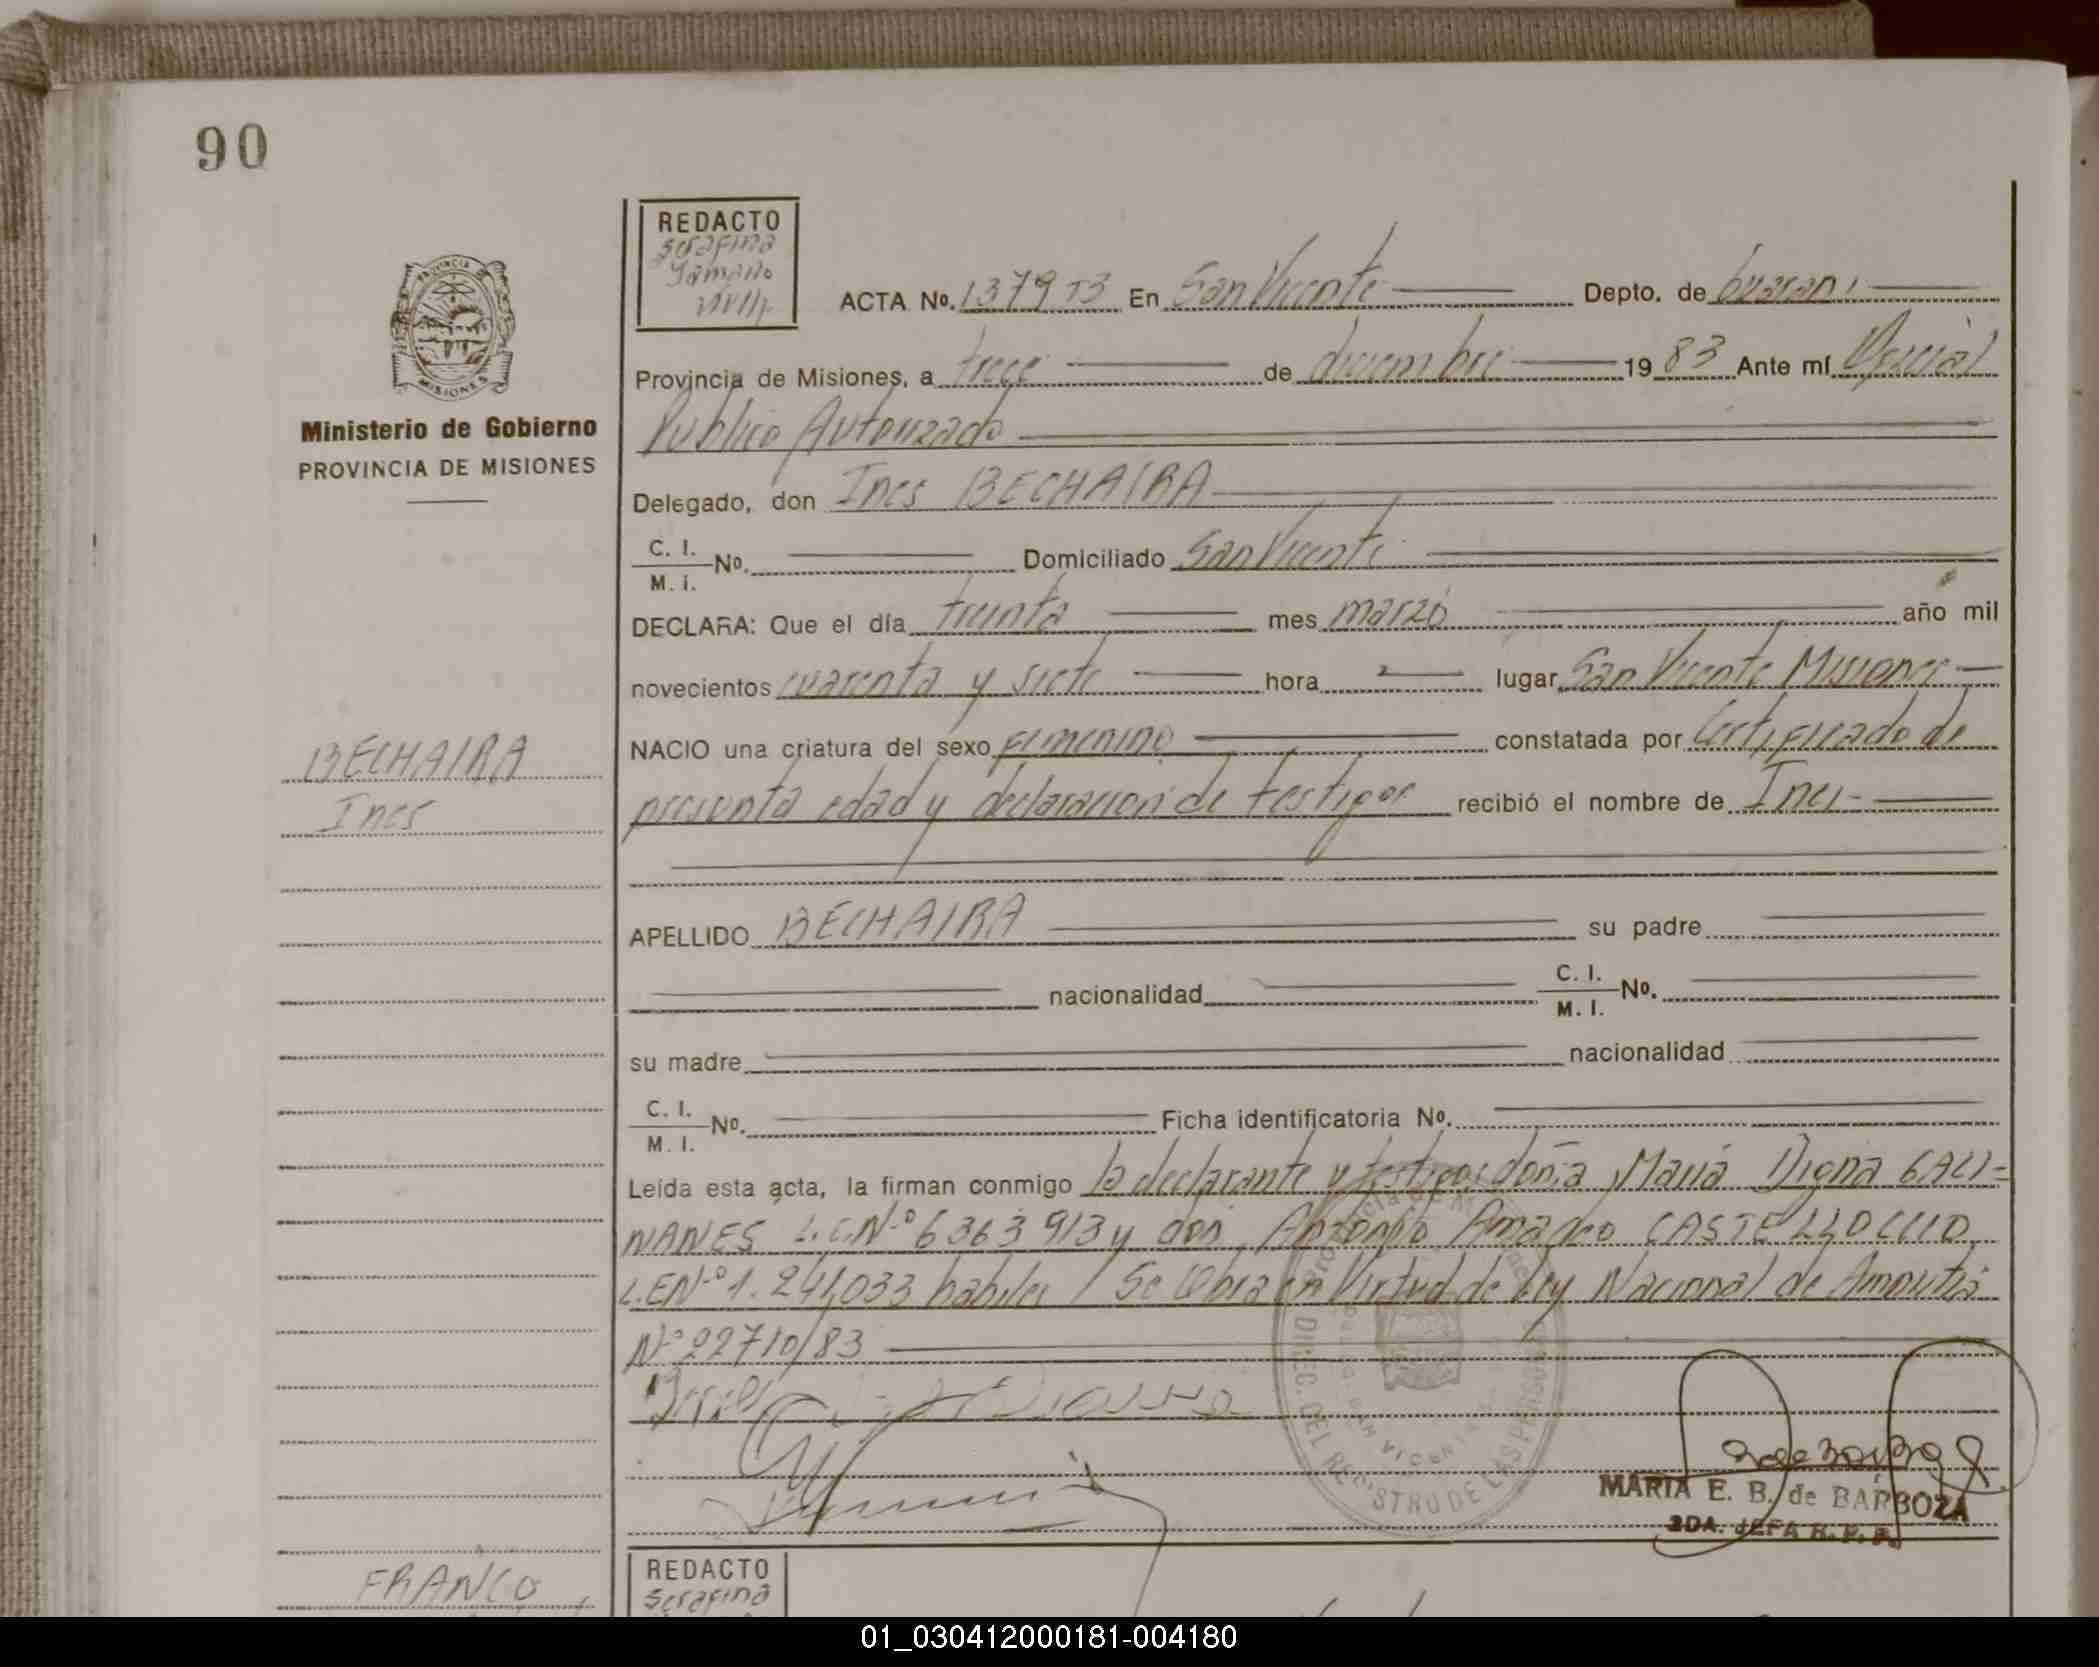 90
REDACTO
Serafina
Tamaño
ACTA No. 1379 T3 En San Vicente Depto. de Guarani
Provincia de Misiones, a trece de diciembre 19 83 Ante mí Oficial
Publico Autorizado
PROVINCIA DE
MISIONES
Ministerio de Gobierno
PROVINCIA DE MISIONES
Delegado, don Ines BECHAIRA
C. I. M. I. No. Domiciliado San Vicente
DECLARA: Que el día treinta mes marzo año mil
novecientos cuarenta y siete hora lugar San Vicente Misiones
NACIO una criatura del sexo femenino constatada por Certificado de
BECHAIRA
Ines
presunta edad y declaracion de testigos recibió el nombre de Ines
APELLIDO BECHAIRA su padre
nacionalidad C. I. M. I. No.
su madre nacionalidad
C. I. M. I. No. Ficha identificatoria No.
Leída esta acta, la firman conmigo la declarante y testigos doña Maria Digna GALI=
NANES L.C.Nº 6363 913 y don Antonio Amaro
L.E.Nº 1.241,033 habiles / Se labra en Virtud de Ley Nacional de Amnistia
Nº 22710/83
DIREC. DEL REGISTRO DE LAS PERSONAS
SAN VICENTE
MARIA E. B. de BARBOZA
2DA. JEFA R. P. P.
FRANCO
REDACTO
Serafina
01_030412000181-004180